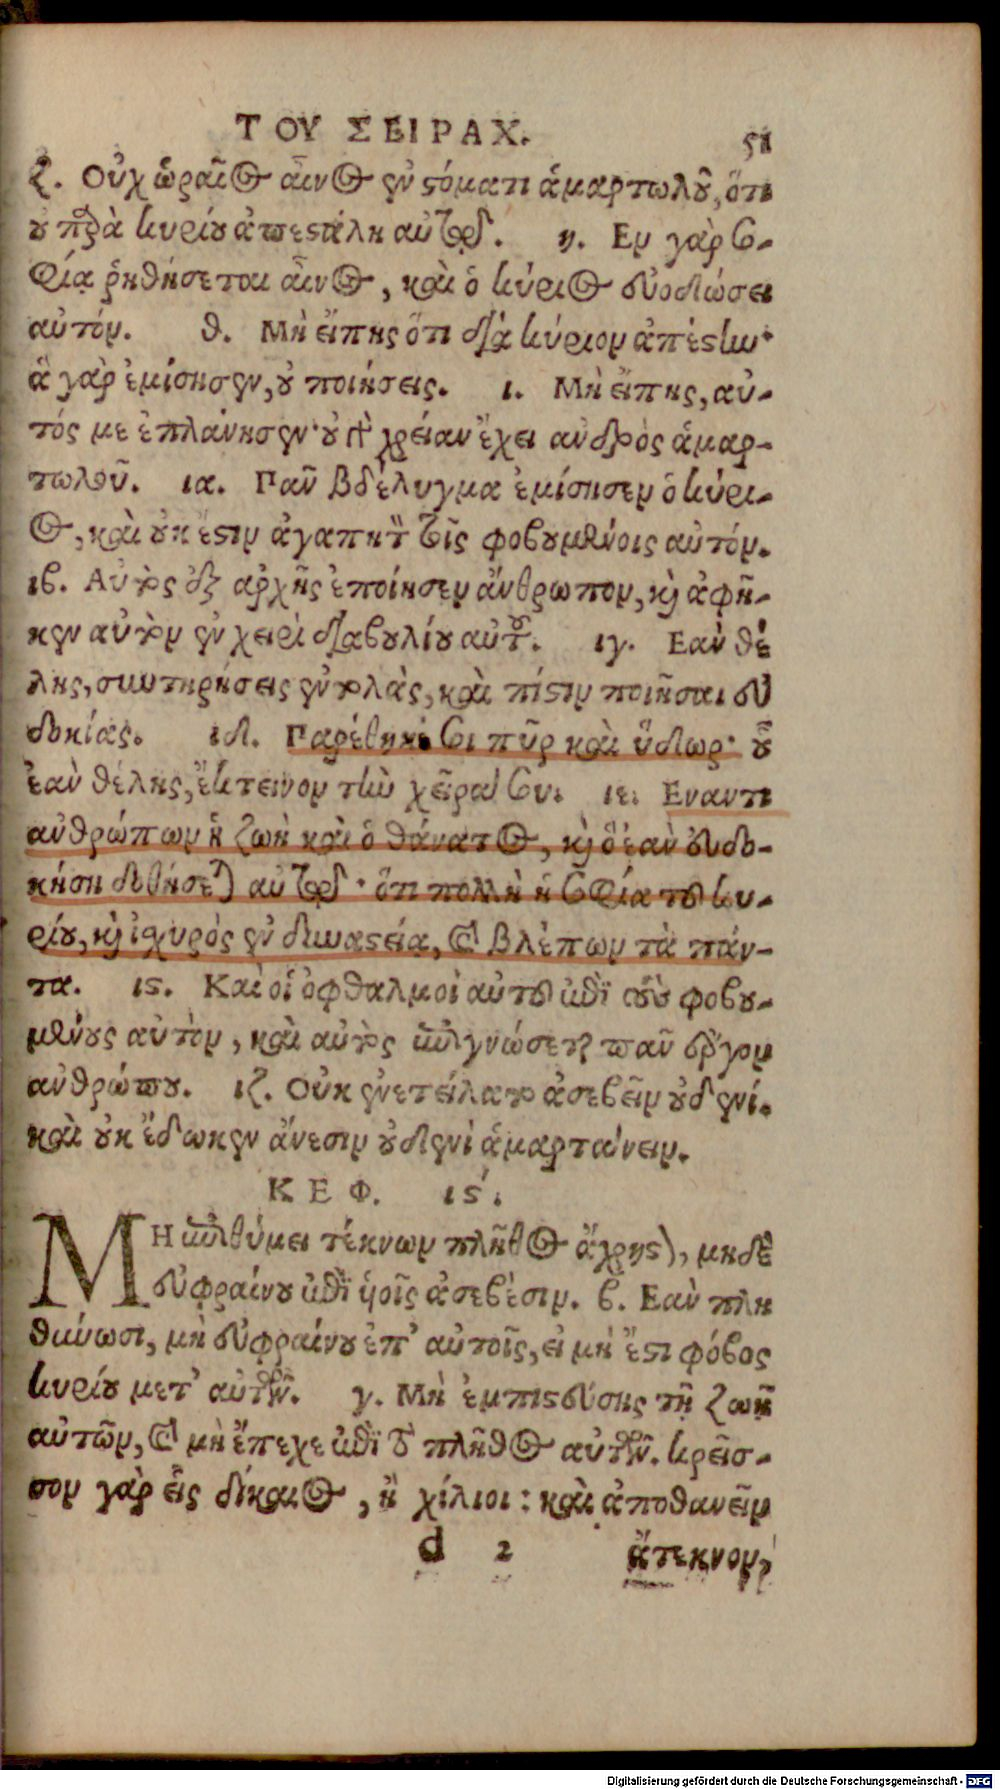 ΤΟΥ ΣΕΙΡΑΧ. 51
ζ. Οὐχ ὡραῖος αἶνος ἐν στόματι ἁμαρτωλοῦ, ὅτι
οὐ παρὰ κυρίου ἀπεστάλη αὐτῷ. η. Εν γὰρ σο-
φίᾳ ῥηθήσεται αἶνος, καὶ ὁ κύριος εὐοδώσει
αὐτόν. θ. Μὴ εἴπης ὅτι διὰ κύριον ἀπέστην·
ἃ γὰρ ἐμίσησεν, οὐ ποιήσεις. ι. Μὴ εἴπης, αὐ-
τός με ἐπλάνησεν· οὐ γὰρ χρείαν ἔχει ανδρὸς ἁμαρ-
τωλοῦ. ια. Παν βδέλυγμα ἐμίσησεν ὁ κύρι-
ος, καὶ οὐκ ἔστιν ἀγαπητὸν τοῖς φοβουμένοις αὐτόν.
ιβ. Αὐτὸς ἐξ αρχῆς ἐποίησεν ἄνθρωπον, καὶ ἀφῆ-
κεν αὐτὸν ἐν χειρὶ διαβουλίου αὐτοῦ. ιγ. Εαν θέ
λης, συντηρήσεις ἐντολὰς, καὶ πίστιν ποιῆσαι εὐ
δοκίας. ιδ. Παρέθηκέ σοι πῦρ καὶ ὕδωρ· οὗ
ἐαν θέλης, ἔκτεινον τὴν χεῖρά σου. ιε. Εναντι
ανθρώπων ἡ ζωὴ καὶ ὁ θάνατος, καὶ ὃ ἐὰν εὐδο-
κήση δοθήσεται αὐτῷ· ὅτι πολλὴ ἡ σοφία τοῦ κυ-
ρίου, καὶ ἰσχυρὸς ἐν δυναστεία, καὶ βλέπων τὰ πάν-
τα. ις. Καὶ οἱ ὀφθαλμοὶ αὐτοῦ ἐπὶ τοὺς φοβου-
μένους αὐτὸν, καὶ αὐτὸς ἐπιγνώσεται παν ἔργον
ανθρώπου. ιζ. Οὐκ ἐνετείλατο ἀσεβεῖν οὐδενί.
καὶ οὐκ ἔδωκεν ἄνεσιν οὐδενὶ ἁμαρτάνειν.
ΚΕΦ. ις.
ΜΗ ἐπιθύμει τέκνων πλῆθος ἄχρηστον, μηδὲ
εὐφραίνου ἐπὶ υἱοῖς ἀσεβέσιν. β. Εαν πλη
θύνωσι, μὴ εὐφραίνου ἐπ' αὐτοῖς, εἰ μή ἔστι φόβος
κυρίου μετ' αὐτῶν. γ. Μὴ ἐμπιστεύσης τῇ ζωῇ
αὐτῶν, καὶ μὴ ἔπεχε ἐπὶ τὸ πλῆθος αὐτῶν. κρεῖσ-
σον γαρ εἷς δίκαιος, ἢ χίλιοι: καὶ ἀποθανεῖν
d 2 ἄτεκνον,
Digitalisierung gefördert durch die Deutsche Forschungsgemeinschaft - DFG